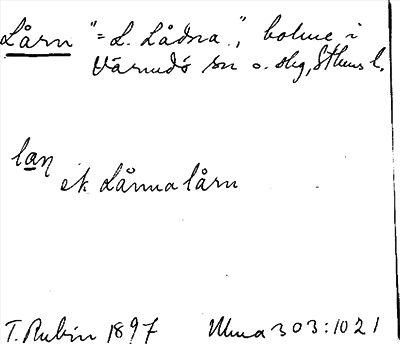 Lårn "=L. Lådna", holme i
Värmdö sn o. skg, Sthms l.
lan
ek Lånna lårn
T. Rubin 1897 Ulma 303:102 1